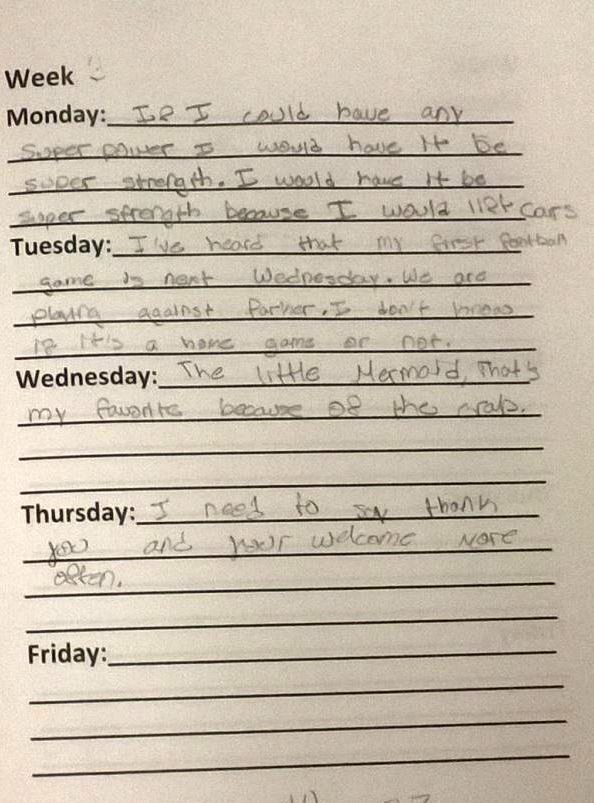 Week
Monday: If I could have any
super power I would have it be
super strength. I would have it be
super strength because I would lift cars
Tuesday: I've heard that my first football
game is next Wednesday. We are
playing against Parker. I don't know
if it's a home game or not.
Wednesday: The little Mermaid, That's
my favorite because of the crab.
Thursday: I need to say thank
you and your welcome more
often.
Friday: